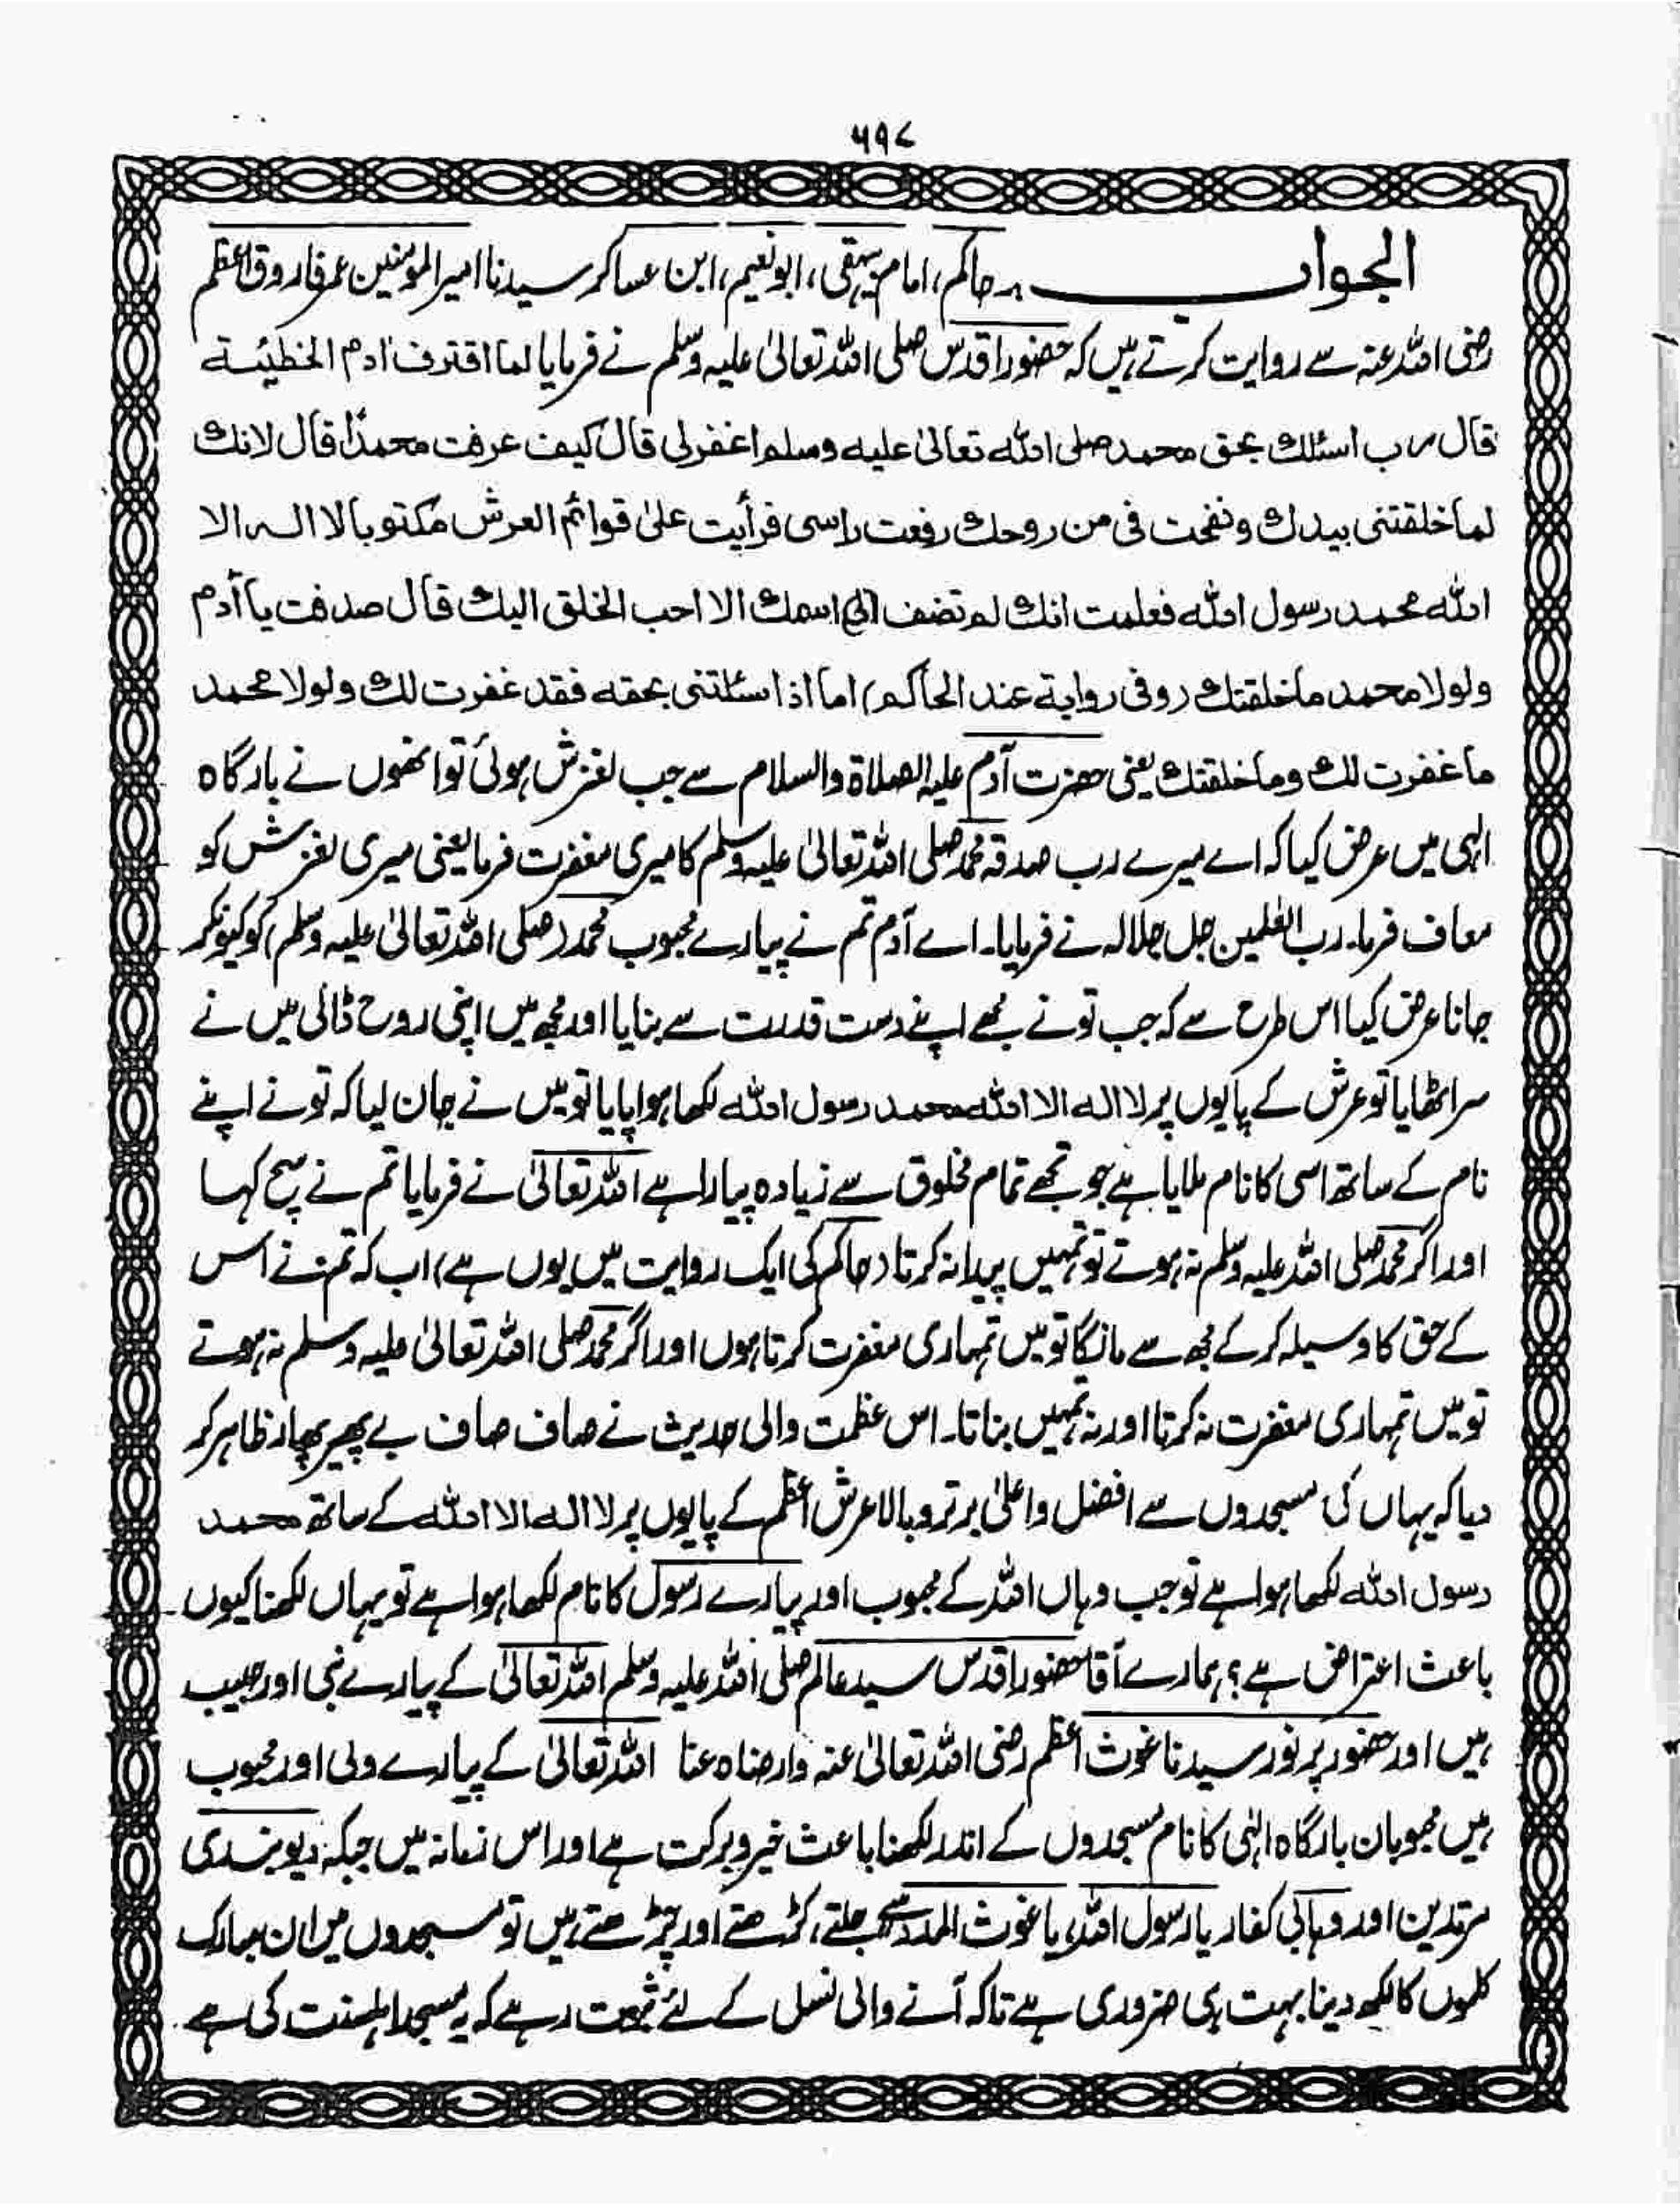 ۵۹۷
الجواب :۔ حاکم، امام بیہقی، ابونعیم، ابن عساکر سیدنا امیرالمؤمنین عمر فاروق اعظم
رضی اللہ عنہ سے روایت کرتے ہیں کہ حضور اقدس صلی اللہ تعالیٰ علیہ وسلم نے فرمایا لما اقترف اٰدم الخطیئۃ
قال رب اسئلك بحق محمد صلی اللہ تعالیٰ علیہ وسلم اغفرلی قال کیف عرفت محمدًا قال لانك
لما خلقتنی بیدك ونفخت فی من روحك رفعت راسی فرأیت علیٰ قوائم العرش مکتوبا لا الہ الا
اللہ محمد رسول اللہ فعلمت انك لم تضف الیٰ اسمك الا احب الخلق الیك قال صدقت یا آدم
ولولا محمد ما خلقتك (وفی روایۃ عند الحاکم) اما اذا سئلتنی بحقہ فقد غفرت لك ولولا محمد
ما غفرت لك وما خلقتك یعنی حضرت آدم علیہ الصلاۃ والسلام سے جب لغزش ہوئی تو انھوں نے بارگاہ
الٰہی میں عرض کیا کہ اے میرے رب صدقہ محمد صلی اللہ تعالیٰ علیہ وسلم کا میری مغفرت فرما یعنی میری لغزش کو
معاف فرما۔ رب العٰلمین جل جلالہ نے فرمایا۔ اے آدم تم نے پیارے محبوب محمد (صلی اللہ تعالیٰ علیہ وسلم) کو کیونکر
جانا عرض کیا اس طرح سے کہ جب تو نے مجھے اپنے دست قدرت سے بنایا اور مجھ میں اپنی روح ڈالی میں نے
سر اٹھایا تو عرش کے پایوں پر لا الہ الا اللہ محمد رسول اللہ لکھا ہوا پایا تو میں نے جان لیا کہ تو نے اپنے
نام کے ساتھ اسی کا نام ملایا ہے جو تجھے تمام مخلوق سے زیادہ پیارا ہے اللہ تعالیٰ نے فرمایا تم نے سچ کہا
اور اگر محمد صلی اللہ علیہ وسلم نہ ہوتے تو تمہیں پیدا نہ کرتا (حاکم کی ایک روایت میں یوں ہے) اب کہ تم نے اس
کے حق کا وسیلہ کر کے مجھ سے مانگا تو میں تمہاری مغفرت کرتا ہوں اور اگر محمد صلی اللہ تعالیٰ علیہ وسلم نہ ہوتے
تو میں تمہاری مغفرت نہ کرتا اور نہ تمہیں بناتا۔ اس عظمت والی حدیث نے صاف صاف بے پھیر پھار ظاہر کر
دیا کہ یہاں کی مسجدوں سے افضل و اعلیٰ برتر و بالا عرش اعظم کے پایوں پر لا الہ الا اللہ کے ساتھ محمد
رسول اللہ لکھا ہوا ہے تو جب وہاں اللہ کے محبوب اور پیارے رسول کا نام لکھا ہوا ہے تو یہاں لکھنا کیوں
باعث اعتراض ہے؟ ہمارے آقا حضور اقدس سید عالم صلی اللہ علیہ وسلم اللہ تعالیٰ کے پیارے نبی اور حبیب
ہیں اور حضور پر نور سیدنا غوث اعظم رضی اللہ تعالیٰ عنہ وارضاہ عنا اللہ تعالیٰ کے پیارے ولی اور محبوب
ہیں محبوبان بارگاہ الٰہی کا نام مسجدوں کے اندر لکھنا باعث خیر و برکت ہے اور اس زمانہ میں جبکہ دیوبندی
مرتدین اور وہابی کفار یا رسول اللہ، یا غوث المدد سے جلتے، کڑھتے اور چڑھتے ہیں تو مسجدوں میں ان مبارک
کلموں کا لکھ دینا بہت ہی ضروری ہے تاکہ آنے والی نسل کے لئے ثبوت رہے کہ یہ مسجد اہلسنت کی ہے